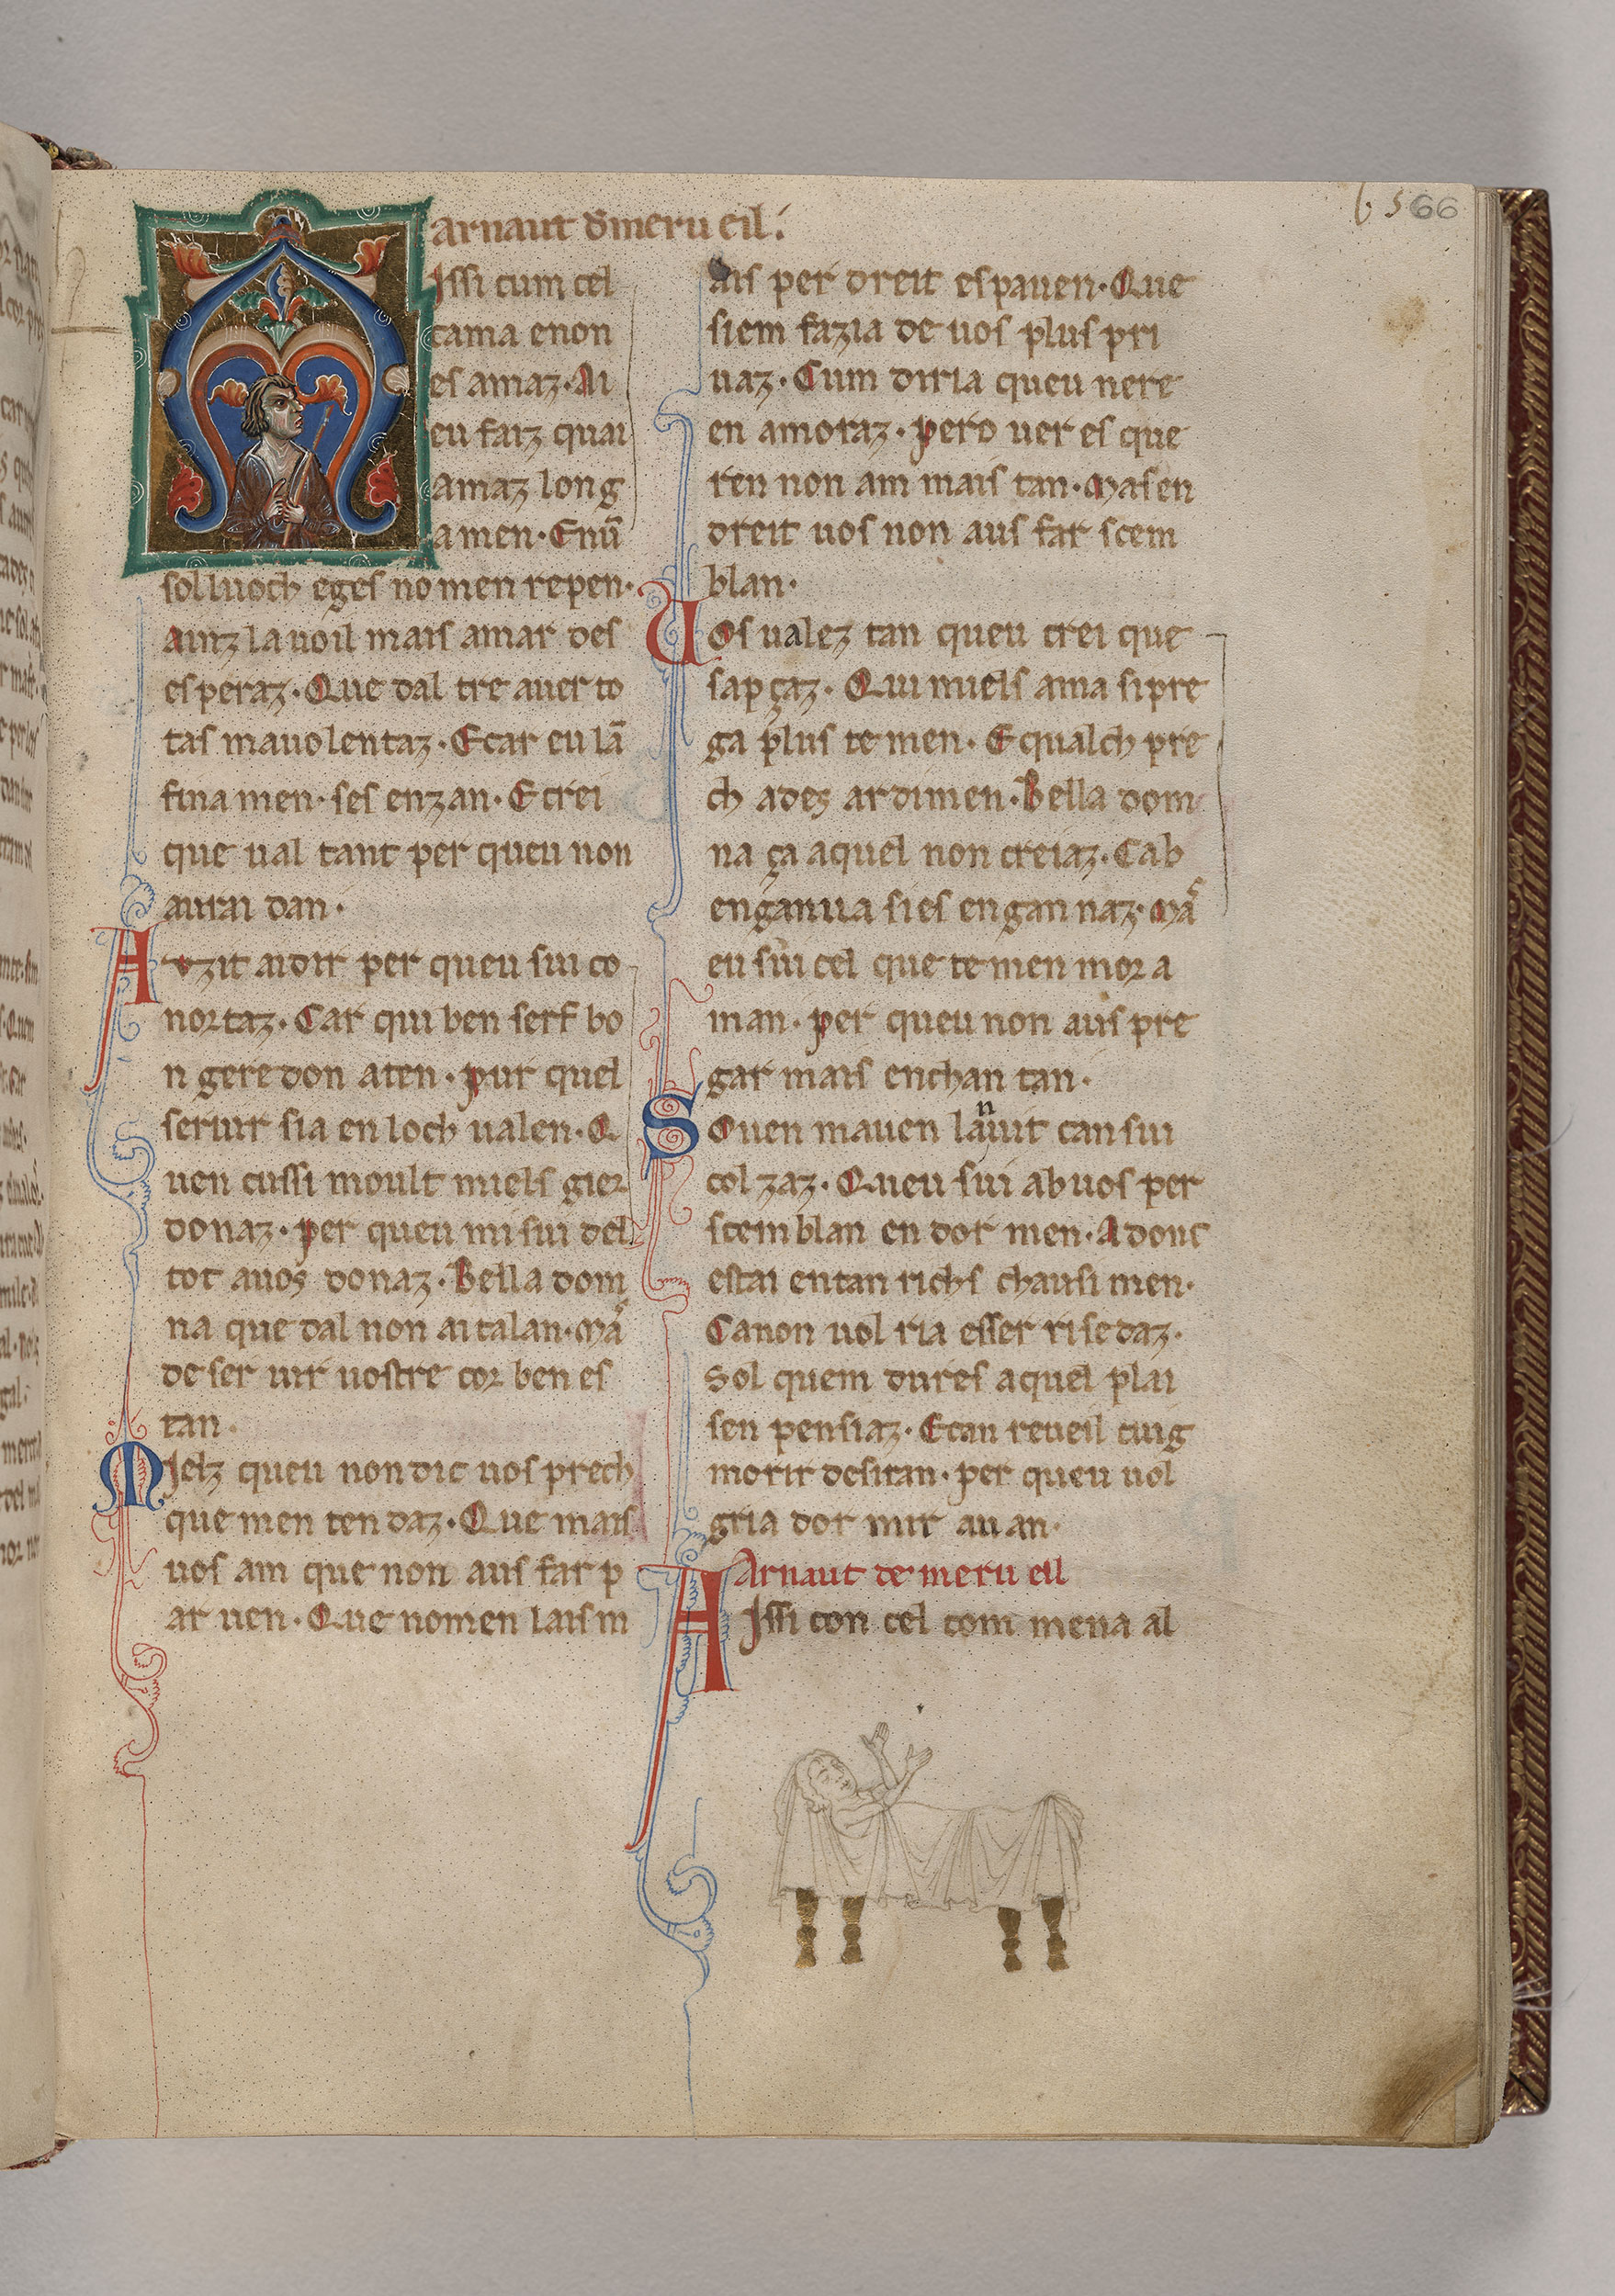 b 5 66
arnaut d'meru eil.
Issi cum cel
cama enon
es amaz. Ai
eu faiz quai
amaz long
amen. Enū
sol luoch eges no men repen.
Ainz la uoil mais amar des
esperaz. Que dal tre auer to
tas mauolentaz. E car eu lā
fina men. ses enzan. E crei
que ual tant per queu non
aurai dan.
Auzit ai dir per queu sui co
nortaz. Car qui ben serf bo
n geredon aten. pur quel
seruir sia en loch ualen. Q
uen cussi moult miels gier
donaz. per queu mi sui del
tot auos donaz. Bella dom
na que dal non ai talan. Mas
de ser uir uostre cor ben es
tan.
Mielz queu non dic uos prech
que men ten daz. Que mais
uos am que non aus far p
ar uen. Que nomen lais m
ais per dreit espauen. Que
siem fazia de uos plus pri
uaz. Cum diria queu nere
en amoraz. pero uer es que
ren non am mais tan. Mas en
dreit uos non aus far scem
blan.
Uos ualez tan queu crei que
sapçaz. Qui miels ama si pre
ga plus te men. E qualch pre
ch ades ardimen. Bella dom
na ça aquel non creiaz. Cab
enganua si es engan naz. Mas
eu sui cel que te men mor a
man. per queu non aus pre
gar mais enchan tan.
Souen mauen la nuit can sui
col zaz. Queu sui ab uos per
scem blan en dor men. Adonc
estai en tan richs chausi men.
Ca non uol ria esser ri se daz.
Sol quem dures aquel plai
sen pensiaz. E can reueil cuig
morir desiran. per queu uol
gria dor mir auan.
Arnaut de meru eil
AIssi con cel com mena al